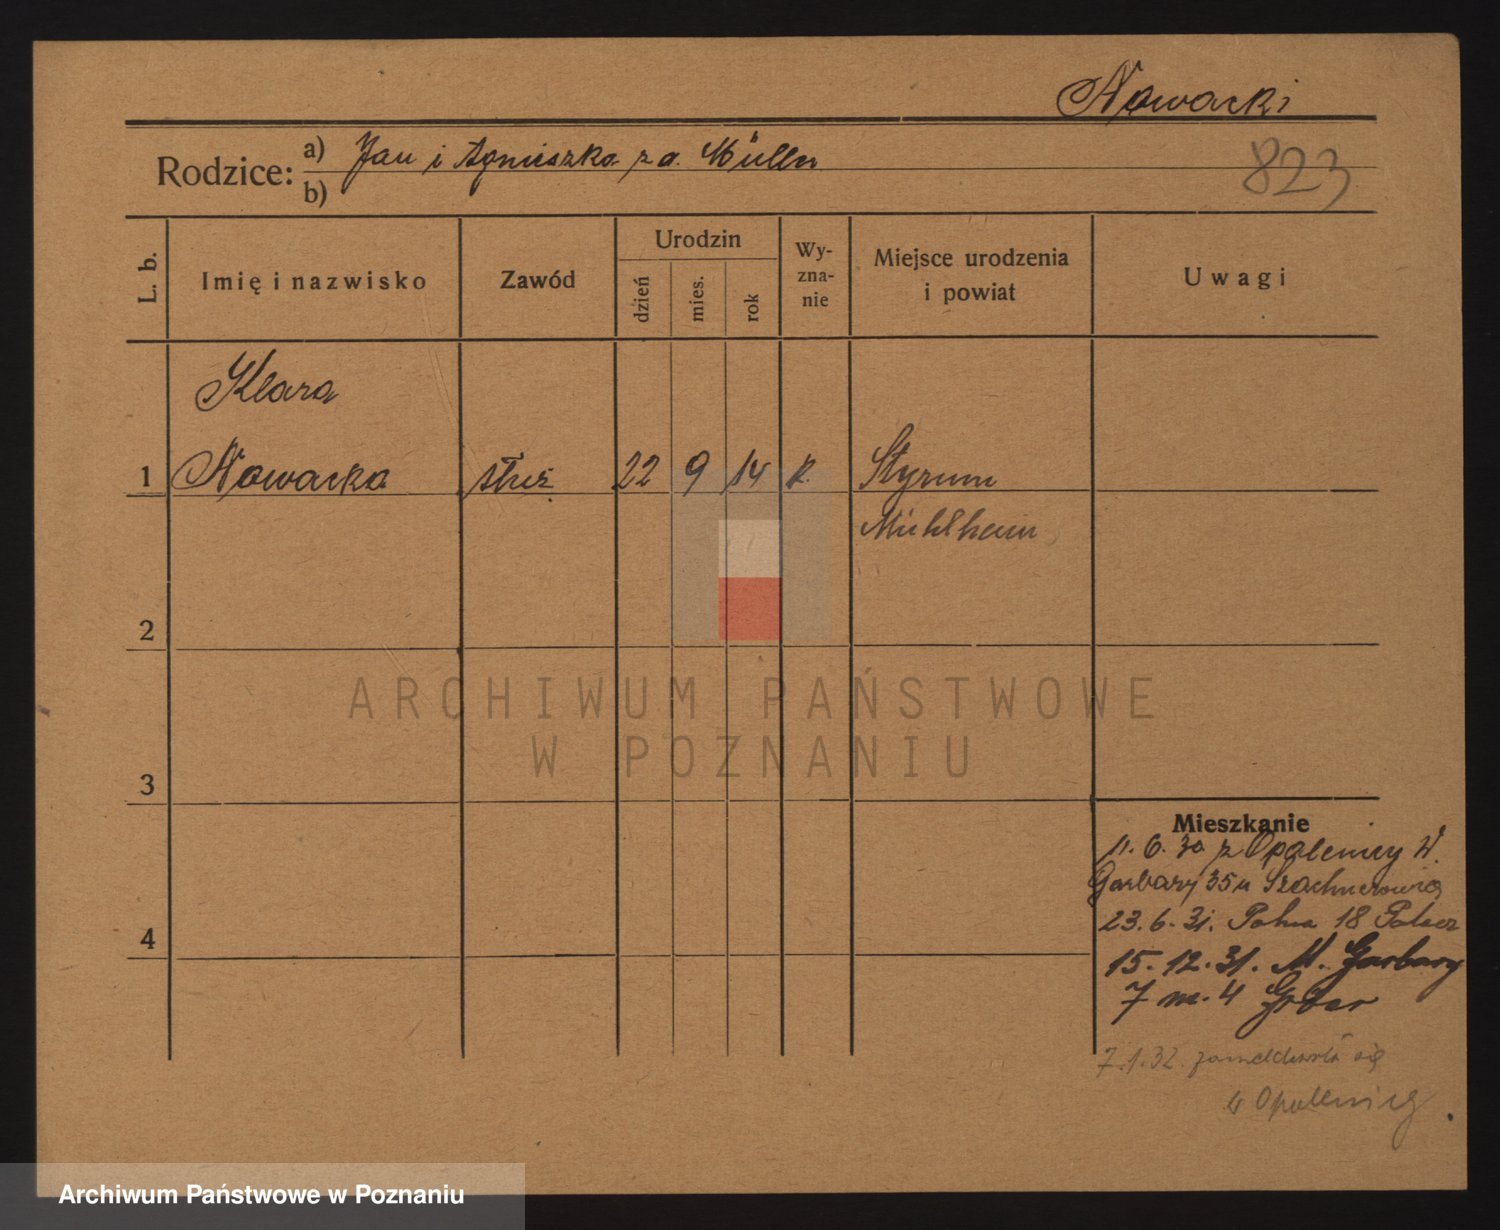 Nowacki
Rodzice: a) Jan i Agnieszka z d. Müller
b)
823
L. b.
Imię i nazwisko
Zawód
Urodzin
dzień
mies.
rok
Wy-
zna-
nie
Miejsce urodzenia
i powiat
Uwagi
Klara
1 Nowacka służ. 22 9 14 k. Styrum
Mühlheim
2
3
4
Mieszkanie
11. 6. 30 z Opalenicy W.
Garbary 35 u
23. 6. 31. 18
15. 12. 31. M. Garbary
7 m. 4
7.1.32. zameldowała się
w Opalenicy
ARCHIWUM PAŃSTWOWE
W POZNANIU
Archiwum Państwowe w Poznaniu